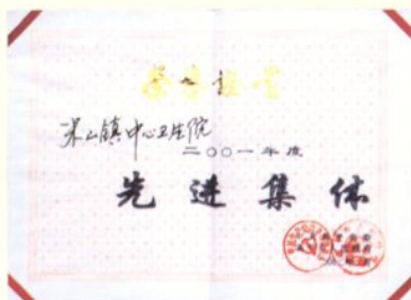 荣誉证书
米山镇中心卫生院
二〇〇一年度
先进集体